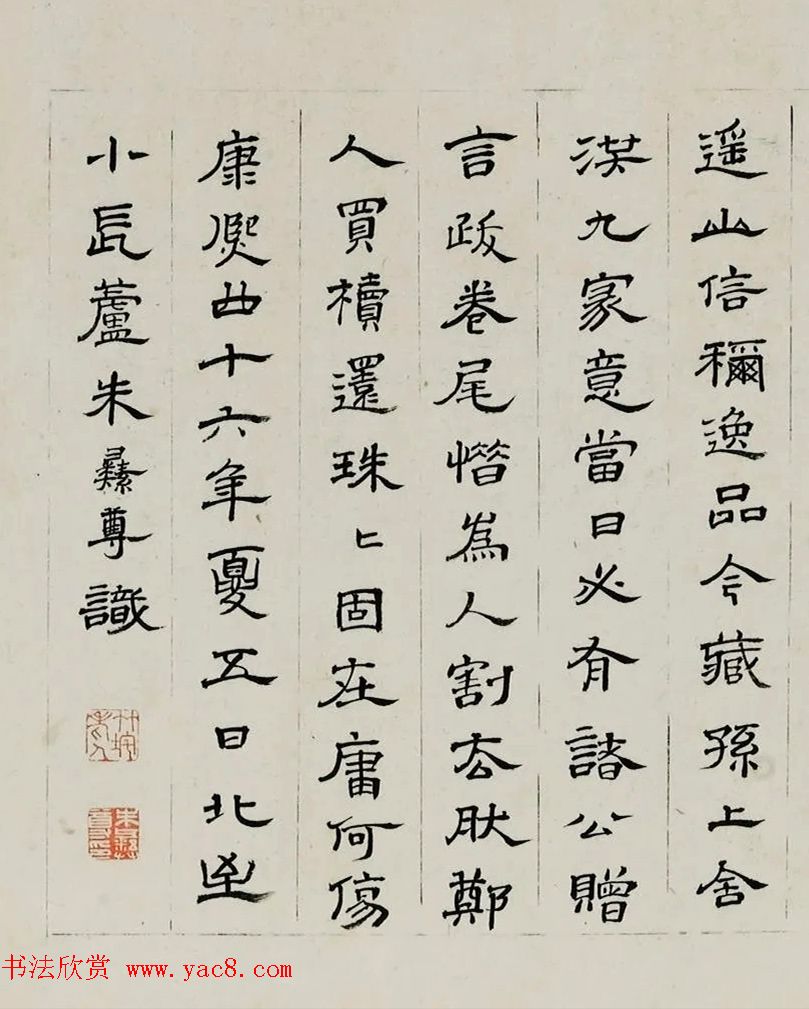 遥山信穪逸品今藏孫上舍
漢九家意當日必有諸公贈
言跋卷尾憯為人割去肰鄭
人買櫝還珠〻固在庸何傷
康熙四十六年夏五日北至
小長蘆朱彝尊識
竹垞老人
朱彝尊印
书法欣赏 www.yac8.com